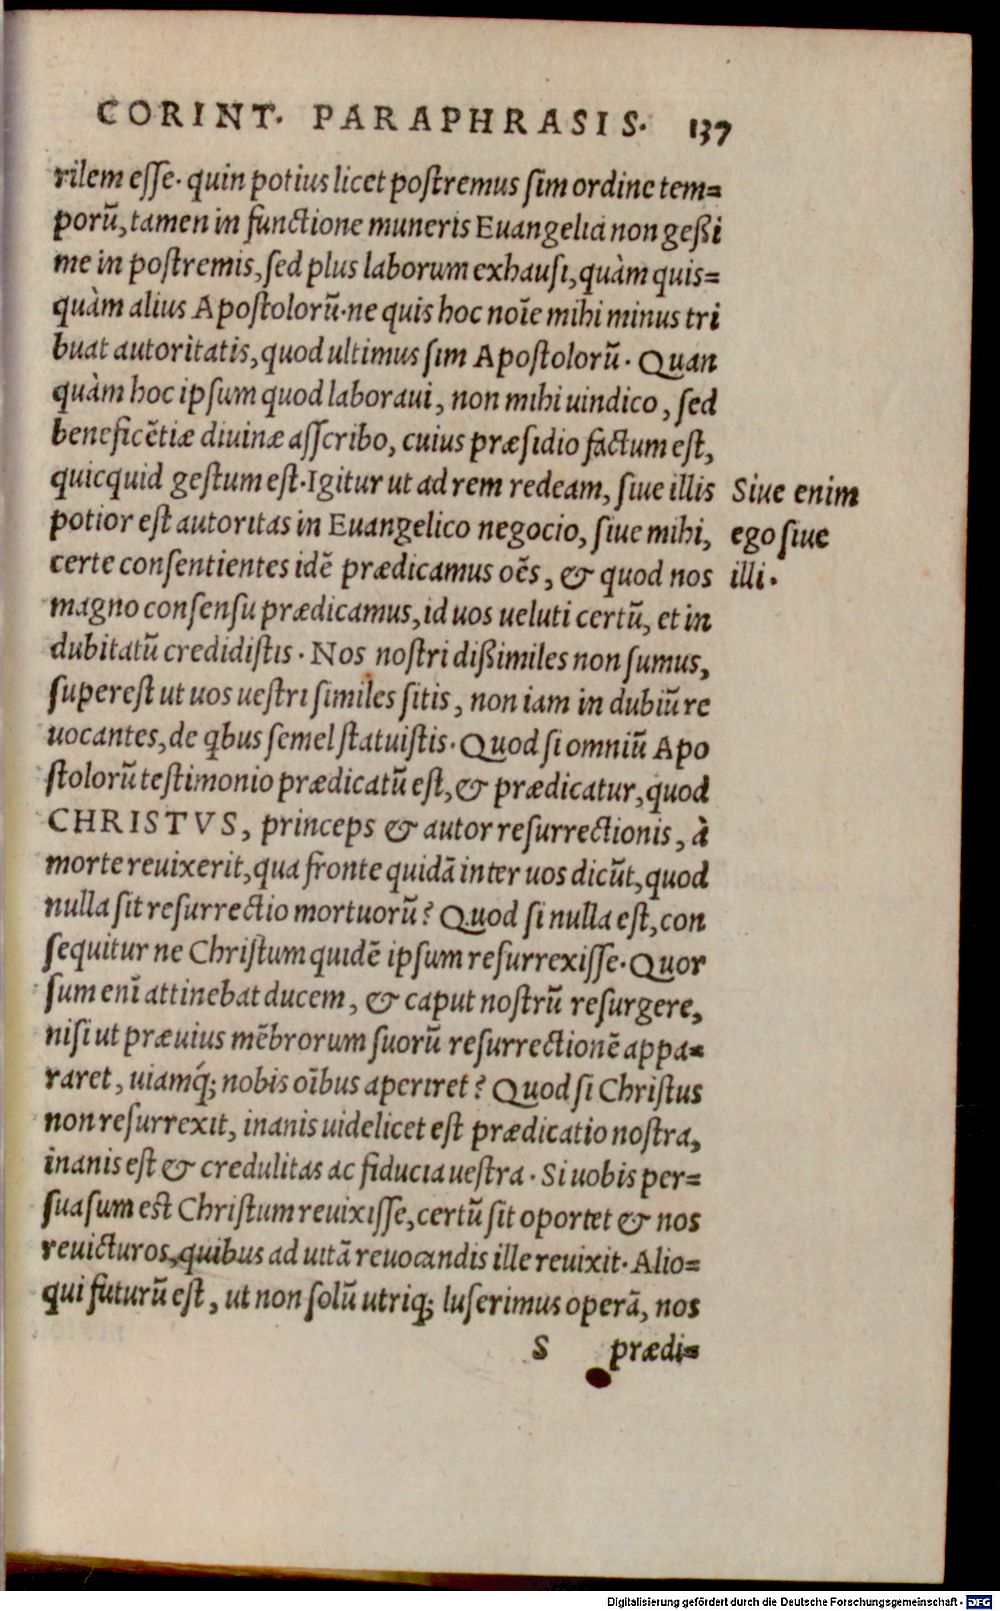 CORINT. PARAPHRASIS. 137
rilem esse. quin potius licet postremus sim ordine tem=
porū, tamen in functione muneris Euangelici non geßi
me in postremis, sed plus laborum exhausi, quàm quis=
quàm alius Apostolorū. ne quis hoc noīe mihi minus tri
buat autoritatis, quod ultimus sim Apostolorū. Quan
quàm hoc ipsum quod laboraui, non mihi uindico, sed
beneficētiæ diuinæ asscribo, cuius præsidio factum est,
quicquid gestum est. Igitur ut ad rem redeam, siue illis
potior est autoritas in Euangelico negocio, siue mihi,
certe consentientes idē prædicamus oēs, & quod nos
magno consensu prædicamus, id uos ueluti certū, et in
dubitatū credidistis. Nos nostri dißimiles non sumus,
superest ut uos uestri similes sitis, non iam in dubiū re
uocantes, de qbus semel statuistis. Quod si omniū Apo
stolorū testimonio prædicatū est, & prædicatur, quod
CHRISTVS, princeps & autor resurrectionis, à
morte reuixerit, qua fronte quidā inter uos dicūt, quod
nulla sit resurrectio mortuorū? Quod si nulla est, con
sequitur ne Christum quidē ipsum resurrexisse. Quor
sum enī attinebat ducem, & caput nostrū resurgere,
nisi ut præuius mēbrorum suorū resurrectionē appa=
raret, uiamq́; nobis oībus aperiret? Quod si Christus
non resurrexit, inanis uidelicet est prædicatio nostra,
inanis est & credulitas ac fiducia uestra. Si uobis per=
suasum est Christum reuixisse, certū sit oportet & nos
reuicturos, quibus ad uitā reuocandis ille reuixit. Alio=
qui futurū est, ut non solū utriq; luserimus operā, nos
S prædi=
Siue enim
ego siue
illi.
Digitalisierung gefördert durch die Deutsche Forschungsgemeinschaft - DFG